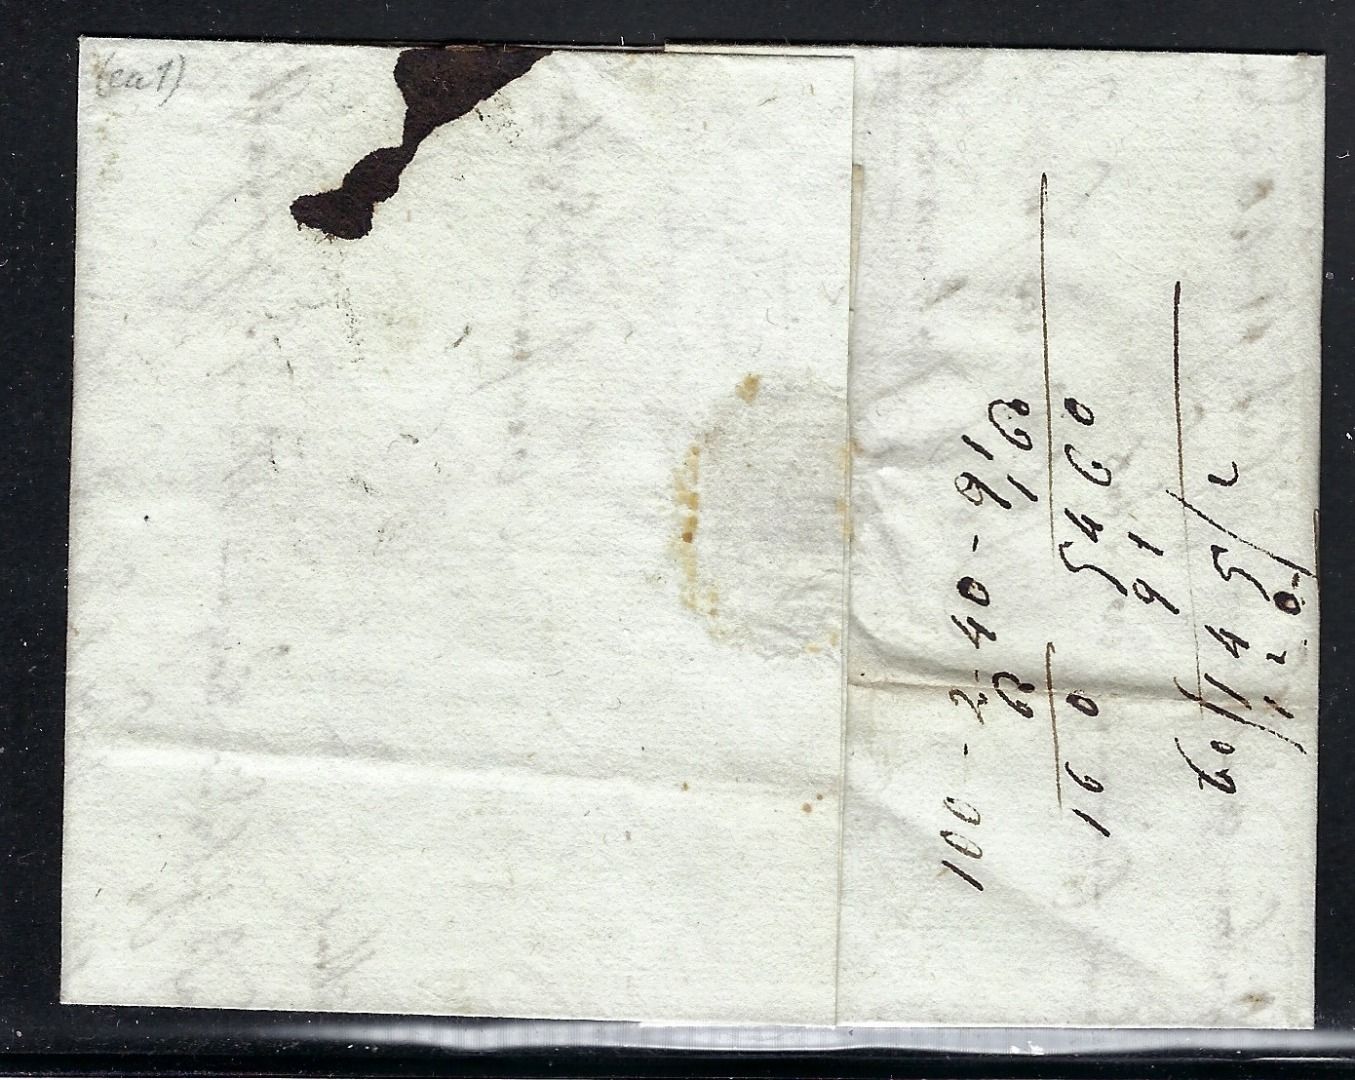 (ca 1)
100 - 2 - 40 - 91
60 60
160 5460
91
60/145/2
120